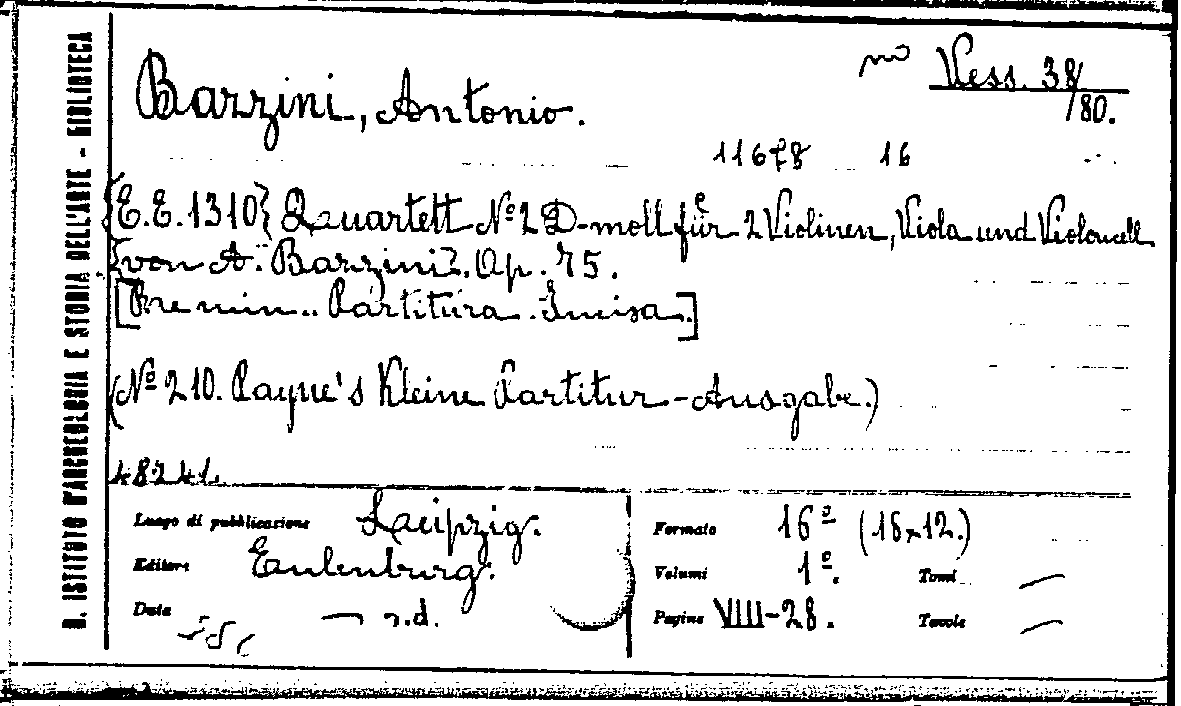 R. ISTITUTO D'ARCHEOLOGIA E STORIA DELL'ARTE - BIBLIOTECA
Vess. 38/80.
Bazzini, Antonio.
11678 16
{E.E. 1310} Quartett Nº 2 D-moll für 2 Violinen, Viola und Violoncell
{von A. Bazzini}. Op. 75.
[Partitura.]
(Nº 210. Payne's Kleine Partitur-Ausgabe.)
48241.
Luogo di pubblicazione Leipzig.
Editore Eulenburg.
Data — s.d.
Formato 16º (16x12.)
Volumi 1º. Tomi —
Pagine VIII-28. Tavole —